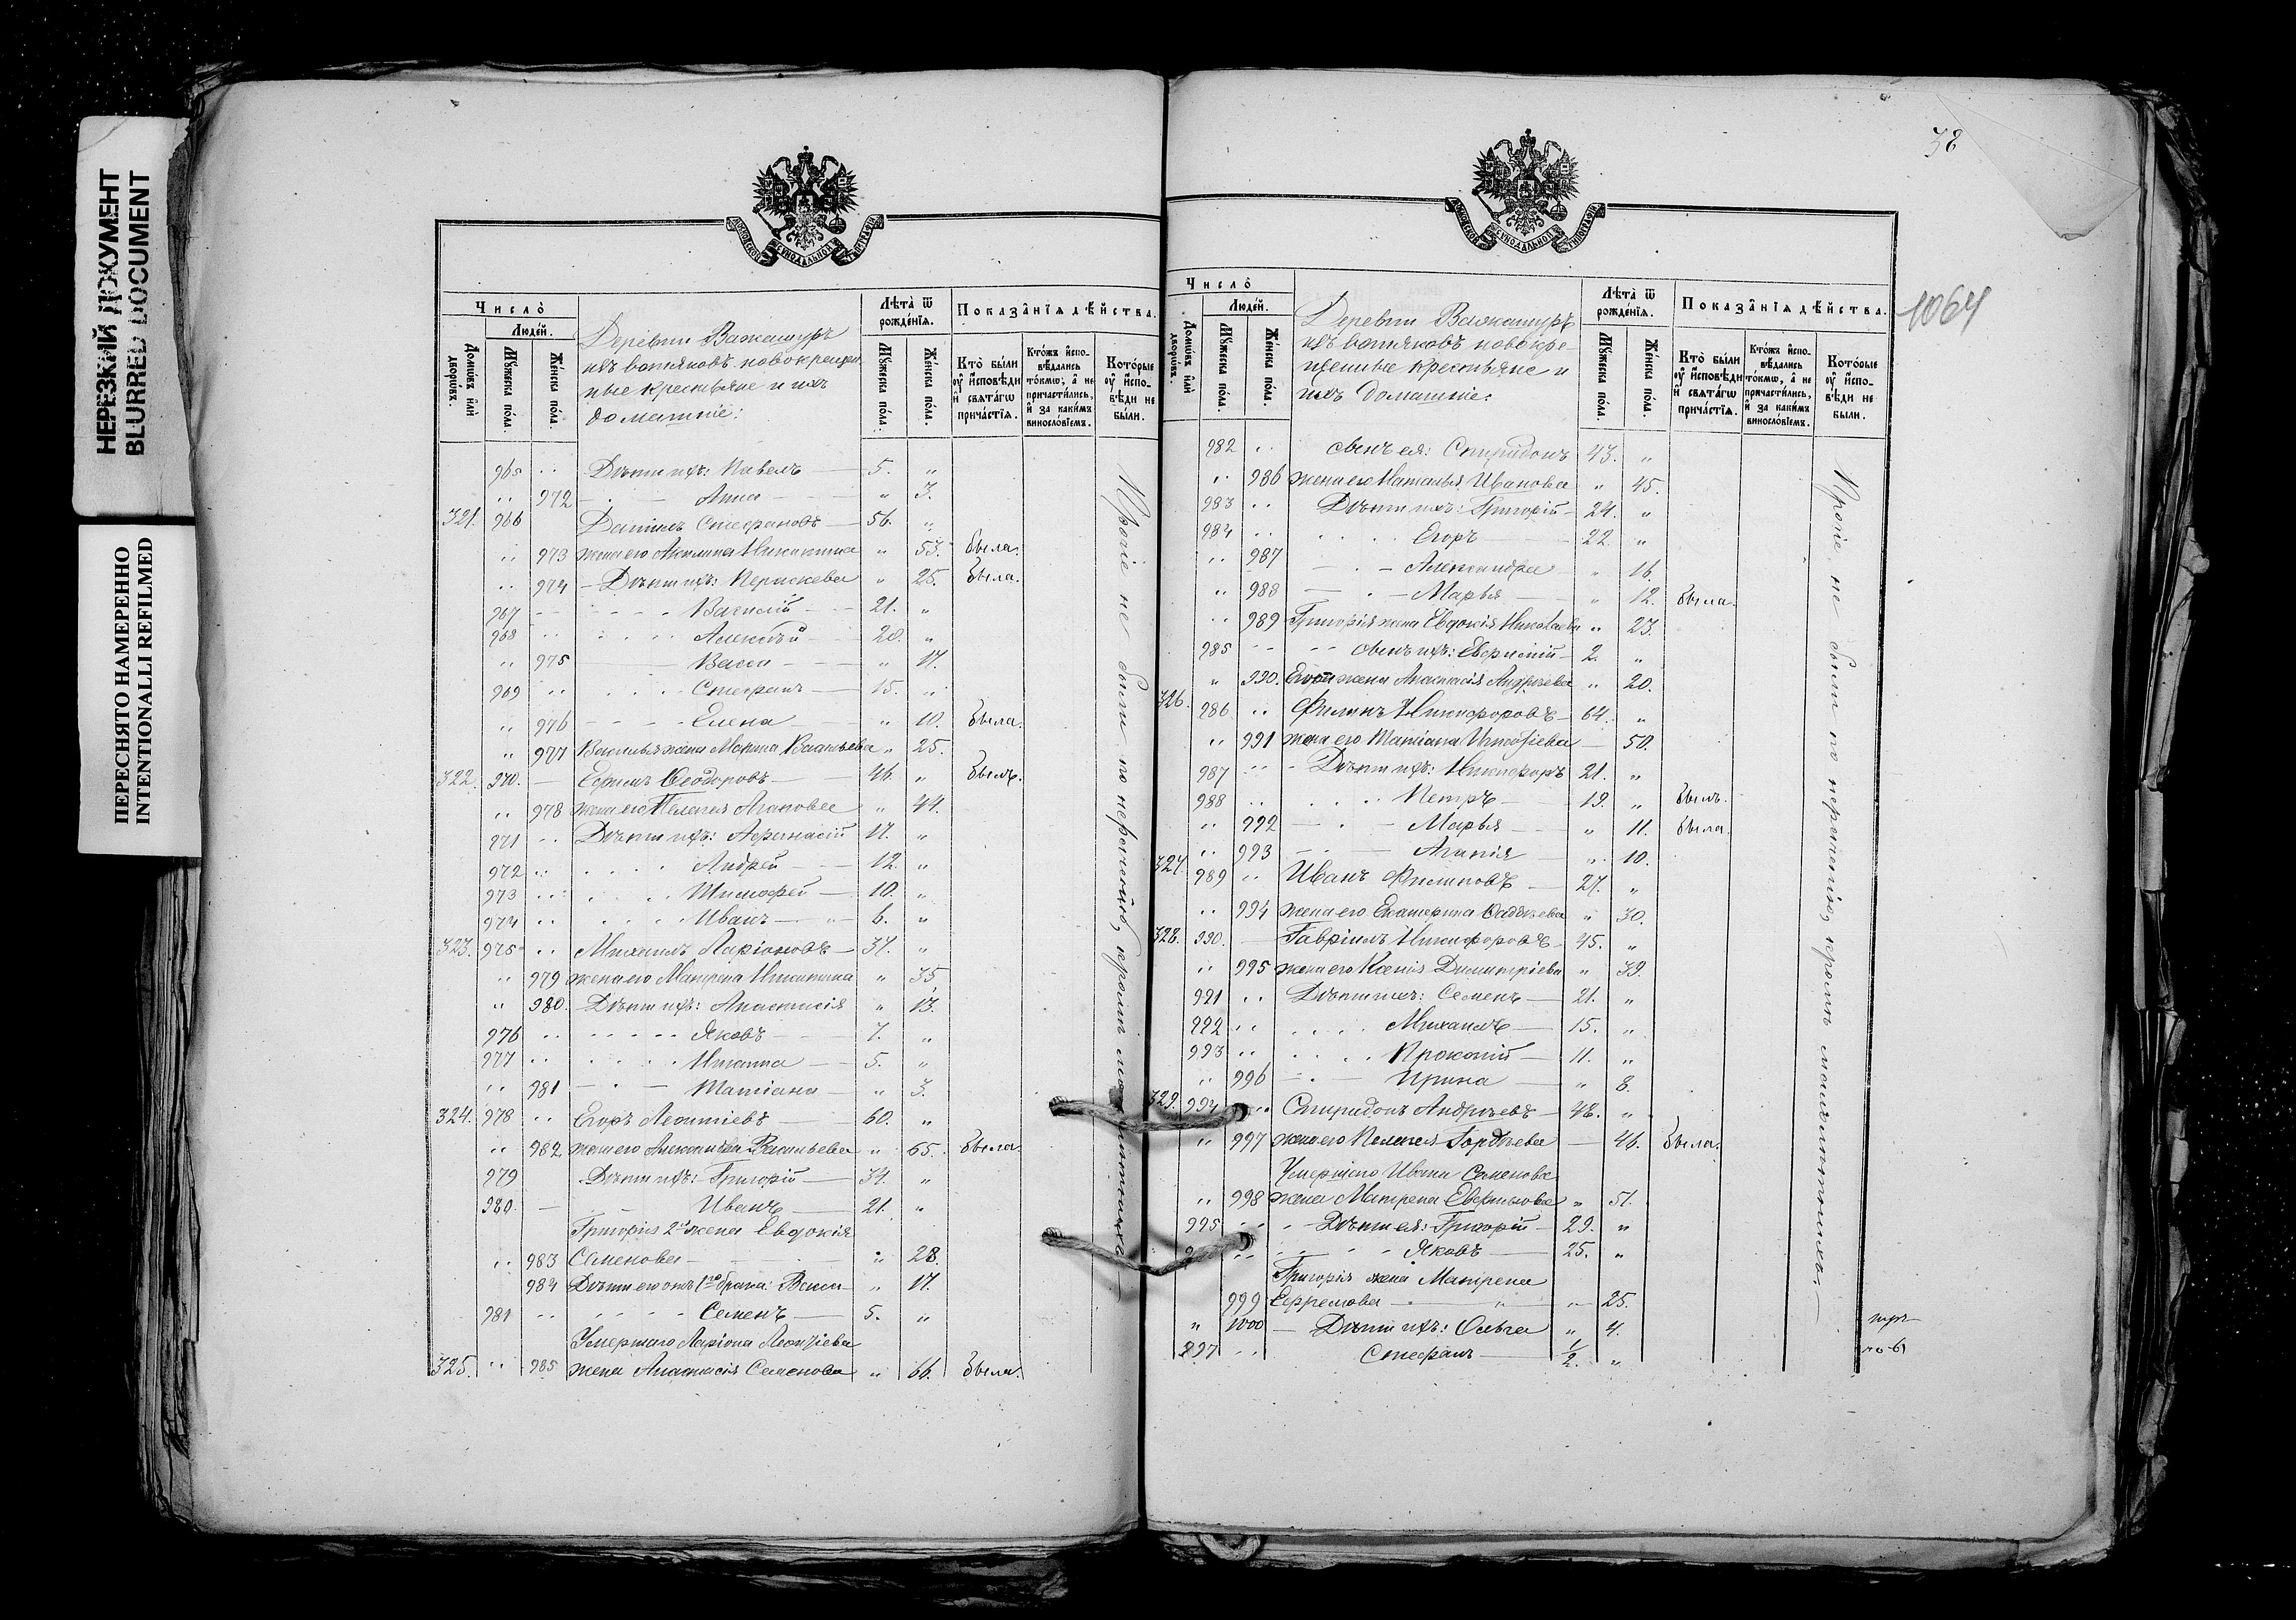 НЕРЕЗКИЙ ДОКУМЕНТ
BLURRED DOCUMENT
ПЕРЕСНЯТО НАМЕРЕННО
INTENTIONALLI REFILMED
МОСКОВСКОЙ СѴНОДАЛЬНОЙ ТИПОГРАФІИ
Число̀
Людей.
Домѡвъ или дворѡвъ.
Мꙋжеска пола.
Женска пола.
Деревни Важашуръ
изъ вотяковъ новокрещен
ные крестьяне и ихъ
домашніе:
Лѣта̀ ѿ рождéнїѧ.
Мꙋжеска пола.
Женска пола.
Показанїѧ дѣйства.
Кто̀ были ᲂу҆ исповѣди и свѧтагѡ причастїѧ.
Ктожъ исповѣдались токмѡ, а не причастились, и за какимъ винословїемъ.
Которые ᲂу҆ исповѣди не были.
965 .. Дѣти ихъ: Павелъ 5. „
.. 972 Анна „ 3.
321. 966 Даніилъ Стефановъ 56. „
.. 973 жена его Акилина Никитина „ 53. была.
.. 974 Дѣти ихъ: Параскева „ 25. была.
967 Василій 21. „
968 Алексѣй 20. „
.. 975 Васса „ 17.
969 .. Стефанъ 15. „
.. 976 Елена „ 10. была.
„ 977 Василья жена Марина Васильева „ 25.
322. 970. Ефимъ Ѳеодоровъ 46. „ былъ.
.. 978 жена его Пелагея Агапова „ 44.
971 .. Дѣти ихъ: Афанасій 17. „
972 .. Андрей 12. „
973 .. Тимофей 10. „
974 .. Иванъ 6. „
323. 975 .. Михаилъ Ларіоновъ 37. „
.. 979 жена его Матрена Никитина „ 35.
„ 980. Дѣти ихъ: Анастасія „ 13.
976 .. Яковъ 7. „
977 .. Никита 5. „
.. 981 Татіана „ 3.
324. 978 .. Егоръ Леонтіевъ 60. „
.. 982 жена его Александра Васильева „ 65. была.
979 Дѣти ихъ: Григорій 31. „
980 Иванъ 21. „
Григорія 2я жена Евдокія
.. 983 Семенова „ 28.
984 Дѣти его отъ 1го брака: Васса „ 17.
981 .. Семенъ 5. „
Умершаго Ларіона Леонтіева
325. „ 985 жена Анастасія Семенова „ 66. была.
Прочіе не были по нераченію, кромѣ малолѣтныхъ
38
1064
МОСКОВСКОЙ СѴНОДАЛЬНОЙ ТИПОГРАФІИ
Число̀
Людей.
Домѡвъ или дворѡвъ.
Мꙋжеска пола.
Женска пола.
Деревни Важашуръ
изъ вотяковъ новокре-
щенные крестьяне и
ихъ домашніе:
Лѣта̀ ѿ рождéнїѧ.
Мꙋжеска пола.
Женска пола.
Показанїѧ дѣйства.
Кто̀ были ᲂу҆ исповѣди и свѧтагѡ причастїѧ.
Ктожъ исповѣдались токмѡ, а не причастились, и за какимъ винословїемъ.
Которые ᲂу҆ исповѣди не были.
982 .. сынъ ея: Спиридонъ 43. „
.. 986 жена его Наталья Иванова „ 45.
983 .. Дѣти ихъ: Григорій 24. „
984 .. Егоръ 22. „
.. 987 Александра „ 16.
„ 988 Марья „ 12. была.
.. 989 Григорія жена Евдокія Николаева „ 23.
985 сынъ ихъ: Евфимій 2. „
„ 990. Егора жена Анастасія Андреева „ 20.
326. 986 .. Филипъ Никифоровъ 64. „
.. 991 жена его Татіана Игнатіева 50.
987 .. Дѣти ихъ: Никифоръ 21. „
988 .. Петръ 19. „ былъ.
.. 992 Марья „ 11. была.
.. 993 Агапія „ 10.
327. 989 .. Иванъ Филиповъ 27. „
.. 994 жена его Екатерина Фадѣева „ 30.
328. 990. Гавріилъ Никифоровъ 45. „
„ 995 жена его Ксенія Димитріева „ 39.
991 .. Дѣти ихъ: Семенъ 21. „
992 .. Михаилъ 15. „
993 .. Прокопій 11. „
.. 996 Ирина „ 8.
329. 994 .. Спиридонъ Андреевъ 48. „
„ 997 жена его Пелагея Гордѣева 46. была.
Умершаго Ивана Семенова
.. 998 жена Матрена Евфимова „ 51.
995 Дѣти ея: Григорій 29. „
Яковъ 25. „
Григорія жена Матрена
999 Ефремова „ 25.
„ 1000 Дѣти ихъ: Ольга „ 4.
997 .. Стефанъ 1/2. „
Прочіе не были по нераченію, кромѣ малолѣтныхъ.